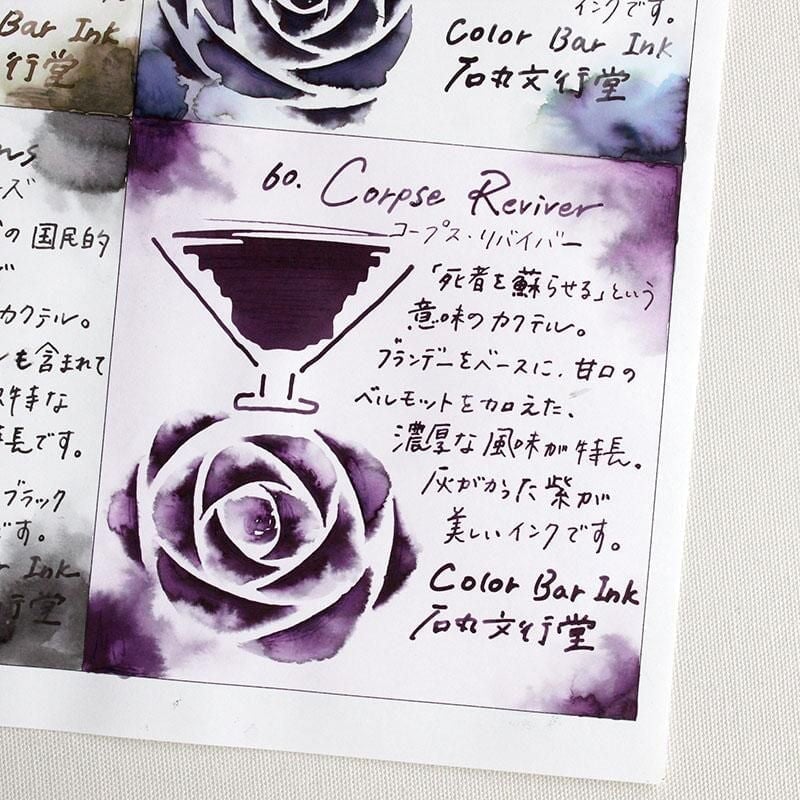 インクです。
Color Bar Ink
石丸文行堂
Bar Ink
行堂
ズ
の 国民的
カクテル。
も含まれて
特長です。
ブラック
です。
Ink
行堂
60. Corpse Reviver
コープス・リバイバー
「死者を蘇らせる」という
意味のカクテル。
ブランデーをベースに、甘口の
ベルモットを加えた、
濃厚な風味が特長。
灰がかった紫が
美しいインクです。
Color Bar Ink
石丸文行堂